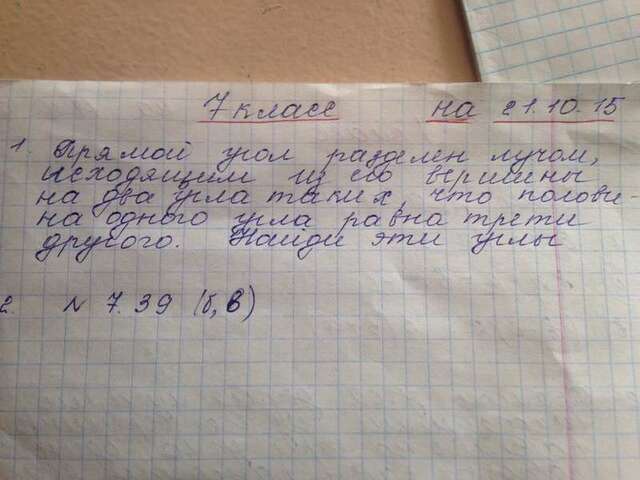 7 класс на 21.10.15
1. Прямой угол разделен лучом,
исходящим из его вершины
на два угла таких, что полови-
на одного угла равна трети
другого. Найди эти углы
2. N 7.39 (б, в)